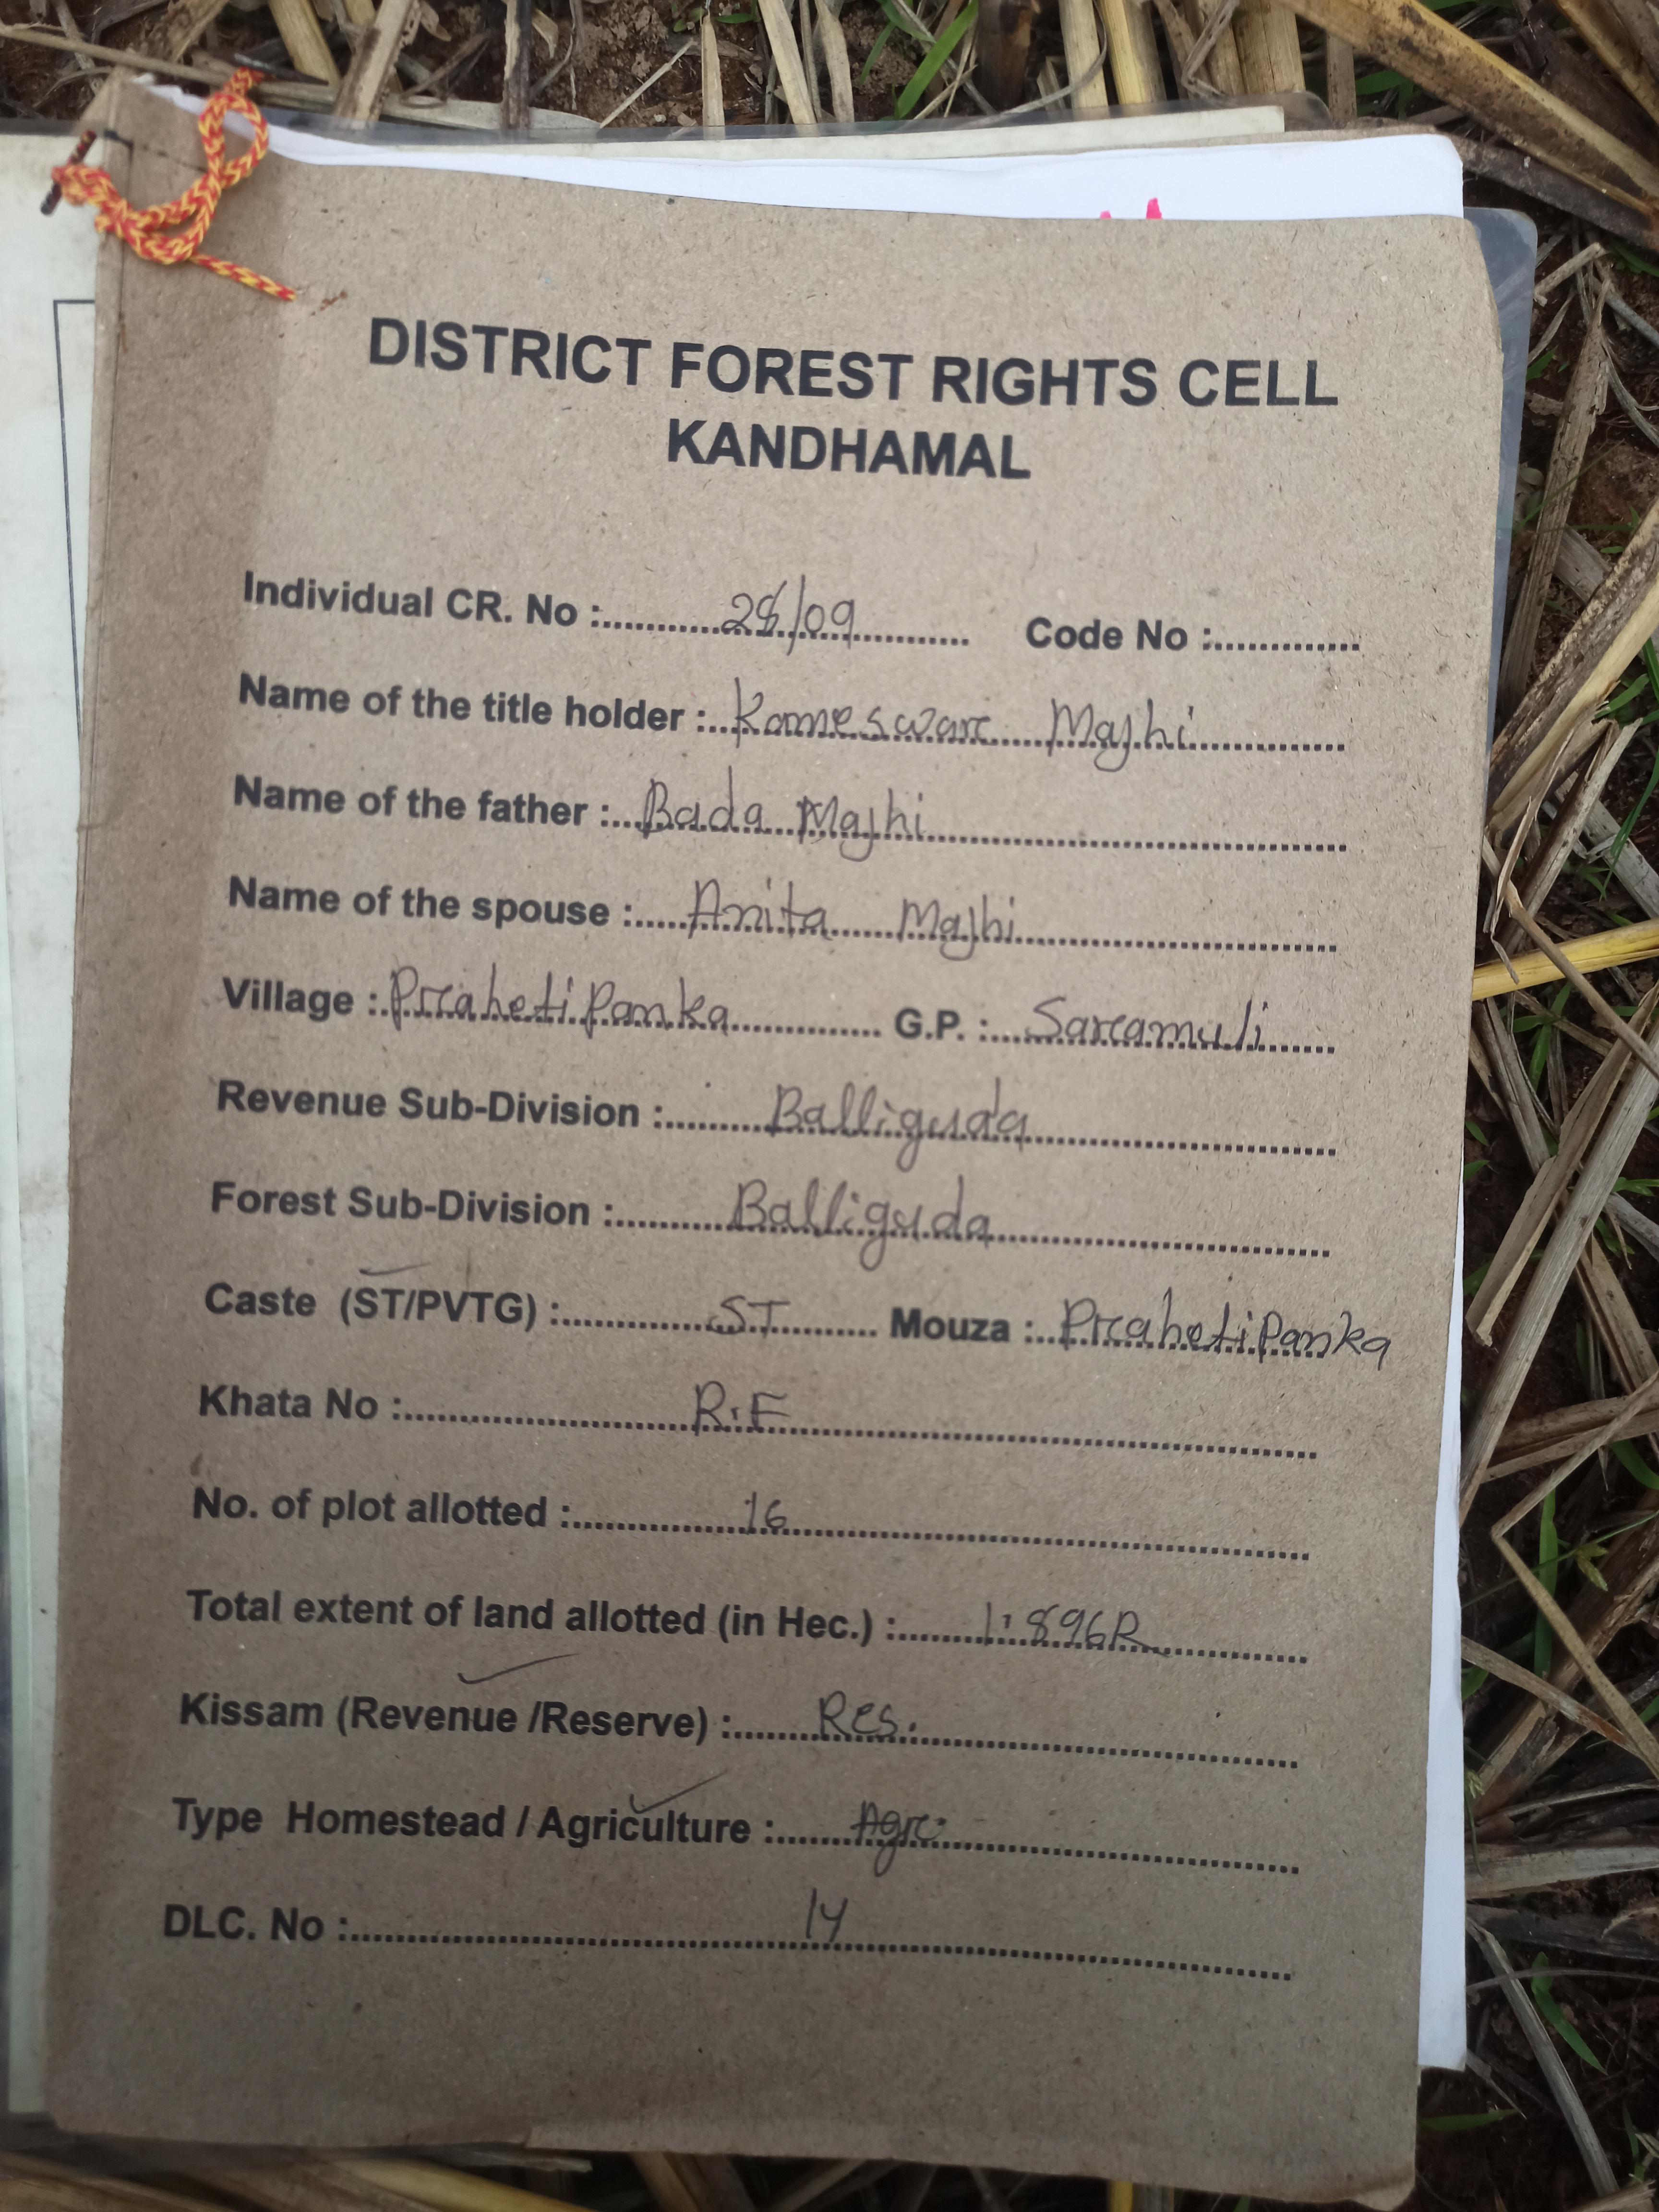 DISTRICT FOREST RIGHTS CELL
KANDHAMAL
Individual CR. No : 28/09 Code No :
Name of the title holder : Kameswarc Majhi
Name of the father : Bada Majhi
Name of the spouse : Anita Majhi
Village : PrcahetiPanka G.P. : Sarcamuli
Revenue Sub-Division : Balliguda
Forest Sub-Division : Balliguda
Caste (ST/PVTG) : ST Mouza : PrcahetiPanka
Khata No : R.F
No. of plot allotted : 16
Total extent of land allotted (in Hec.) : 1.896R
Kissam (Revenue /Reserve) : Res.
Type Homestead / Agriculture : Agrc.
DLC. No : 14